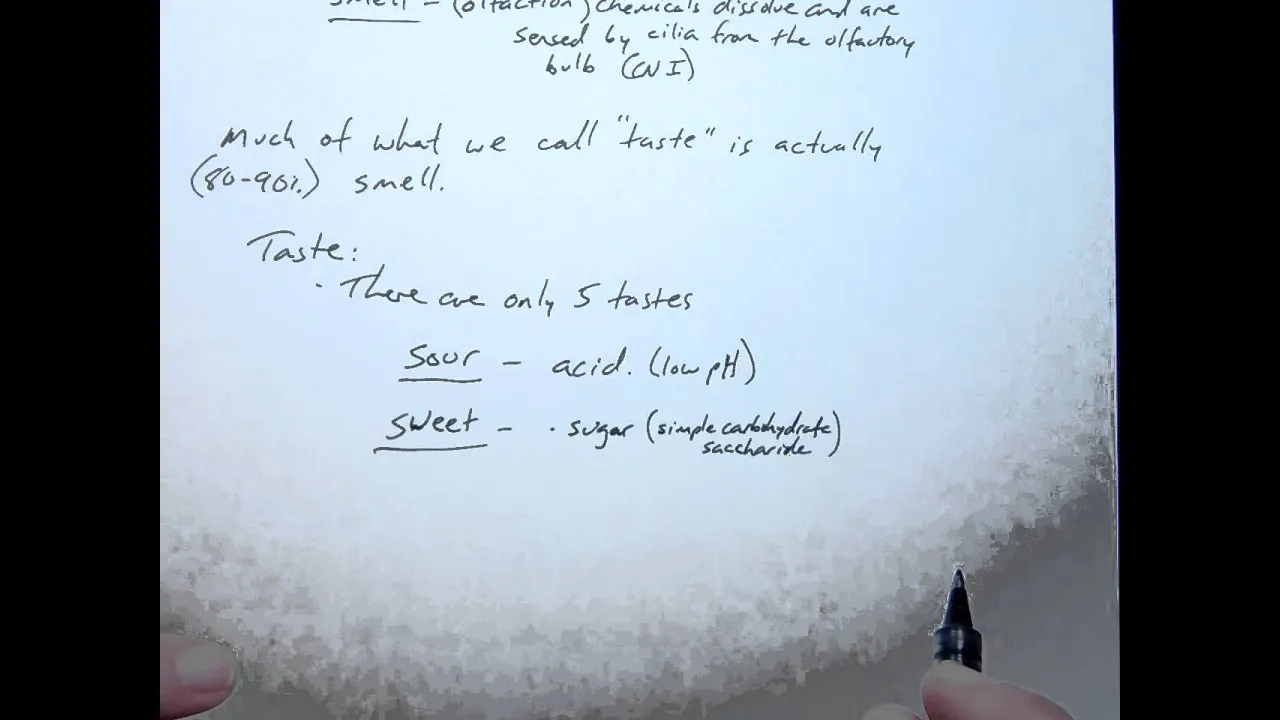 smell - (olfaction) chemicals dissolve and are
sensed by cilia from the olfactory
bulb (CN I)
Much of what we call "taste" is actually
(80-90%) smell.
Taste:
· There are only 5 tastes
sour - acid. (low pH)
sweet - · sugar (simple carbohydrate
saccharide)